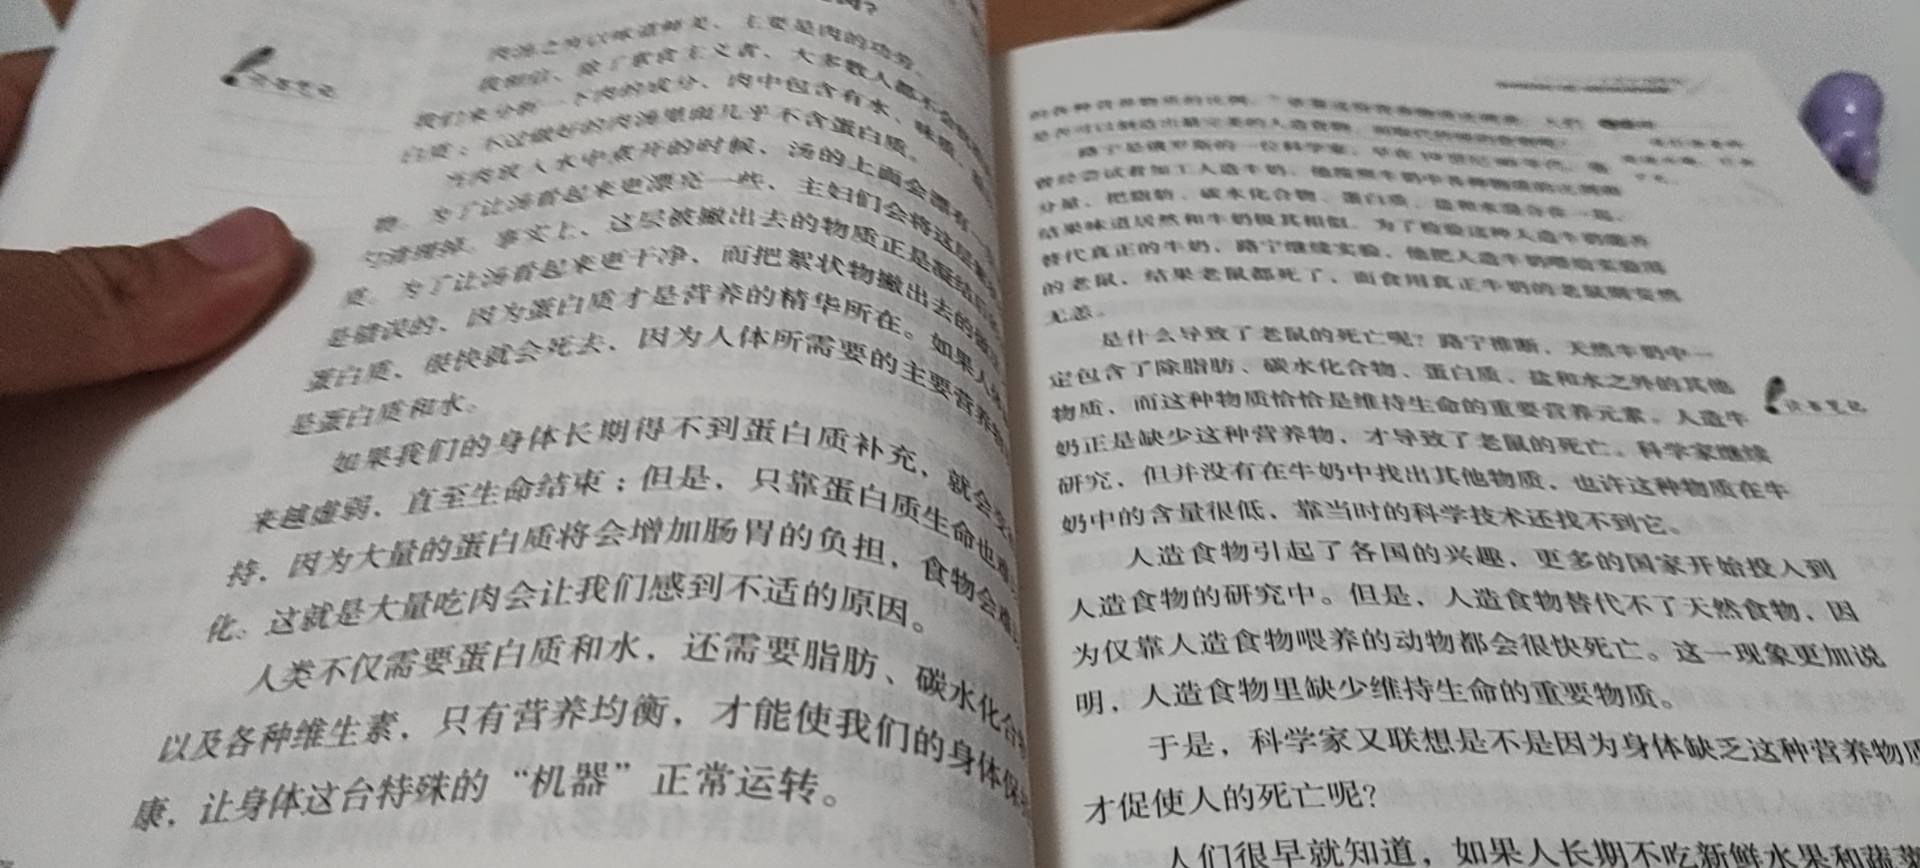 读书笔记
肉汤之所以味道鲜美，主要是肉的功劳。
我相信，除了素食主义者，大多数人都不会
我们来分析一下肉的成分，肉中包含有水、
白质；不过做好的肉汤里面几乎不含蛋白质。
当肉放入水中煮开的时候，汤的上面会漂有一
物。为了让汤看起来更漂亮一些，主妇们会将这层
事实上，这层被撇出去的物质正是凝结
质。为了让汤看起来更干净，而把絮状物撇出去的做
是错误的，因为蛋白质才是营养的精华所在。如果人
蛋白质，很快就会死去，因为人体所需要的主要营养
是蛋白质和水。
如果我们的身体长期得不到蛋白质补充，就会变
来越虚弱，直至生命结束；但是，只靠蛋白质生命也难
持，因为大量的蛋白质将会增加肠胃的负担，食物会难
化。这就是大量吃肉会让我们感到不适的原因。
人类不仅需要蛋白质和水，还需要脂肪、碳水化合
以及各种维生素，只有营养均衡，才能使我们的身体保
康，让身体这台特殊的“机器”正常运转。
是否可以制造出最完美的人造食物，
路宁是俄罗斯的一位科学家，早在19世纪80年代，
曾经尝试着加工人造牛奶，他按照牛奶中各种物质的比例
分量，把脂肪、碳水化合物、蛋白质、盐和水混合在一起，
结果味道居然和牛奶极其相似。为了检验这种人造牛奶能否
替代真正的牛奶，路宁继续实验，他把人造牛奶喂给实验用
的老鼠，结果老鼠都死了，而食用真正牛奶的老鼠则安然
无恙。
是什么导致了老鼠的死亡呢？路宁推断，天然牛奶中一
定包含了除脂肪、碳水化合物、蛋白质、盐和水之外的其他
物质，而这种物质恰恰是维持生命的重要营养元素。人造牛
读书笔记
奶正是缺少这种营养物，才导致了老鼠的死亡。科学家继续
研究，但并没有在牛奶中找出其他物质，也许这种物质在牛
奶中的含量很低，靠当时的科学技术还找不到它。
人造食物引起了各国的兴趣，更多的国家开始投入到
人造食物的研究中。但是，人造食物替代不了天然食物，因
为仅靠人造食物喂养的动物都会很快死亡。这一现象更加说
明，人造食物里缺少维持生命的重要物质。
于是，科学家又联想是不是因为身体缺乏这种营养物质
才促使人的死亡呢？
人们很早就知道，如果人长期不吃新鲜水果和蔬菜